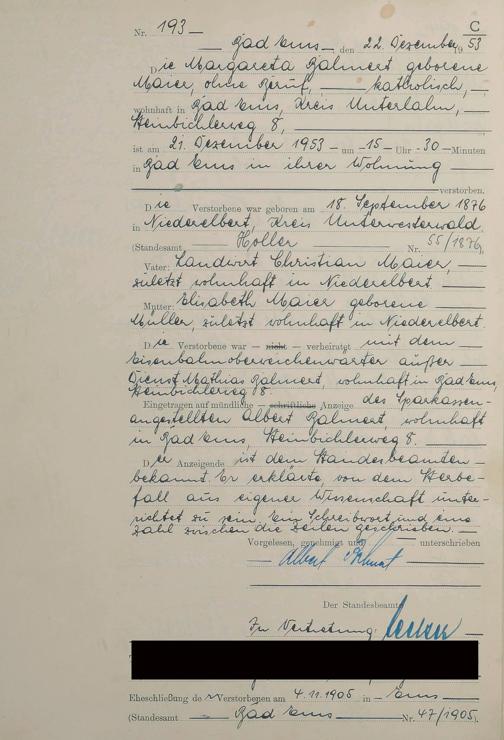 Nr. 193
C
Bad Ems, den 22. Dezember 19 53
Die Margareta Bahnert geborene
Maier, ohne Beruf, katholisch,
wohnhaft in Bad Ems, Kreis Unterlahn,
Steinbichlerweg 8,
ist am 21. Dezember 1953 um 15 Uhr 30 Minuten
in Bad Ems in ihrer Wohnung
verstorben.
Die Verstorbene war geboren am 18. September 1876
in Niederelbert, Kreis Unterwesterwald
(Standesamt Holler Nr. 55/1876)
Vater: Landwirt Christian Maier,
zuletzt wohnhaft in Niederelbert
Mutter: Elisabeth Maier geborene
Müller, zuletzt wohnhaft in Niederelbert.
Die Verstorbene war – nicht – verheiratet mit dem
Eisenbahnoberweichenwärter außer
Dienst Mathias Bahnert, wohnhaft in Bad Ems,
Steinbichlerweg 8.
Eingetragen auf mündliche – schriftliche – Anzeige des Sparkassen-
angestellten Albert Bahnert, wohnhaft
in Bad Ems, Steinbichlerweg 8.
Der Anzeigende ist dem Standesbeamten
bekannt. Er erklärte, von dem Sterbe-
fall aus eigener Wissenschaft unter-
richtet zu sein. Ein Schreibwort und eine
Zahl zwischen die Zeilen geschrieben.
Vorgelesen, genehmigt und unterschrieben
Albert
Der Standesbeamte
In Vertretung:
Eheschließung der Verstorbenen am 4.11.1905 in Ems
(Standesamt Bad Ems Nr. 47/1905).